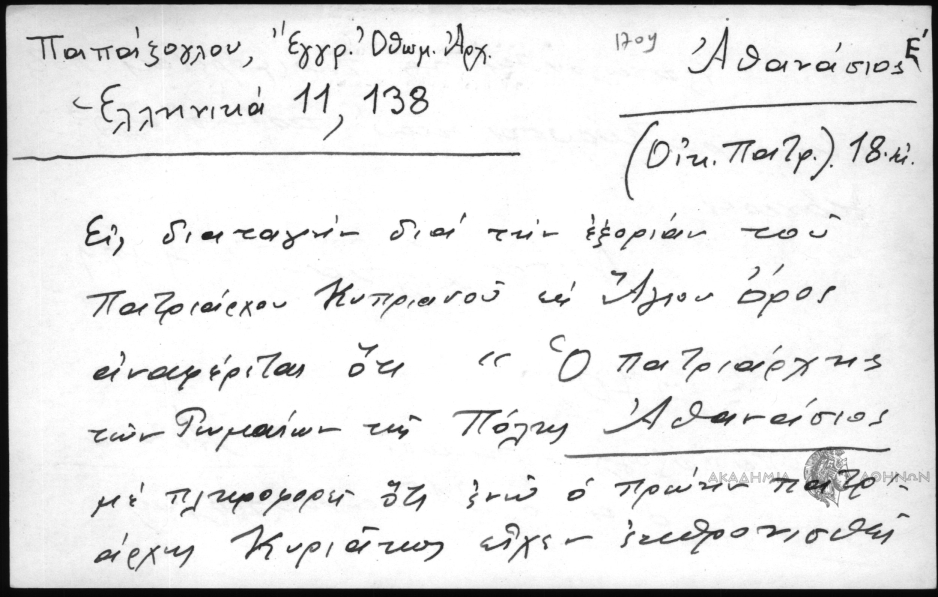 Παπάζογλου, Ἔγγρ. Ὀθωμ. Ἀρχ.
Ἑλληνικά 11, 138
1709
Ἀθανάσιος Ε΄
(Οἰκ. Πατρ.). 18. αἰ.
Εἰς διαταγὴν διά τὴν ἐξορίαν τοῦ
Πατριάρχου Κυπριανοῦ εἰς Ἅγιον Ὄρος
ἀναφέρεται ὅτι " Ὁ πατριάρχης
τῶν Ρωμαίων τῆς Πόλης Ἀθανάσιος
μὲ πληροφορεῖ ὅτι ἐνῶ ὁ πρώην πατρ-
ιάρχης Κυπριανός εἶχεν ἐκθρονισθεῖ
ΑΚΑΔΗΜΙΑ ΑΘΗΝΩΝ